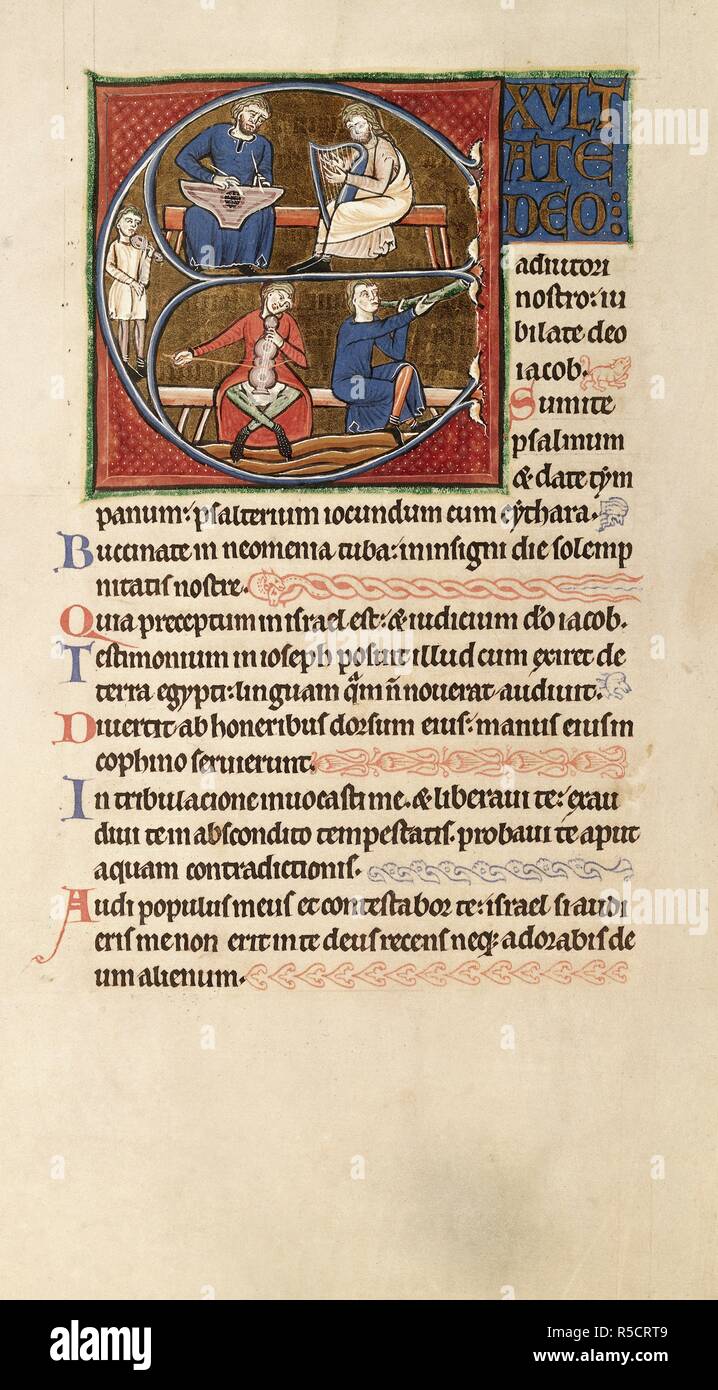 EXULT
ATE
DEO:
adiutori
nostro: iu
bilate deo
iacob.
Sumite
psalmum
& date tym
panum: psalterium iocundum cum cythara.
Buccinate in neomenia tuba: in insigni die solemp
nitatis nostre.
Quia preceptum in israel est: & iudicium d'o iacob.
Testimonium in ioseph posuit illud cum exiret de
terra egypti: linguam q̄m n̄ noverat audivit.
Divertit ab honeribus dorsum eius: manus eius in
cophino servierunt.
In tribulacione invocasti me. & liberavi te: exau
divi te in abscondito tempestatis. probavi te aput
aquam contradictionis.
Audi populus meus et contestabor te: israel si audi
eris me non erit in te deus recens neq; adorabis de
um alienum.
alamy
Image ID: R5CRT9
www.alamy.com